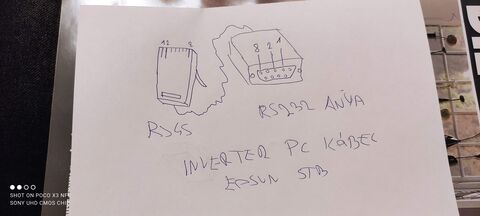 12 8
8 2 1
RJ45
RS232 ANYA
INVERTER PC KÁBEL
EPSUN STB
SHOT ON POCO X3 NFC
SONY UHD CMOS CHIP